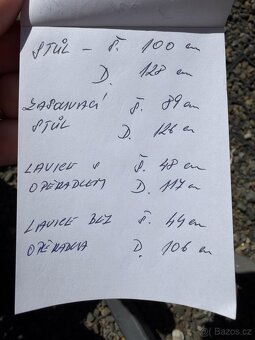 STŮL – Š. 100 cm
D. 128 cm
ZASOUVACÍ Š. 89 cm
STŮL D. 126 cm
LAVICE S Š. 48 cm
OPĚRADLEM D. 117 cm
LAVICE BEZ Š. 44 cm
OPĚRADLA D. 106 cm
Bazos.cz